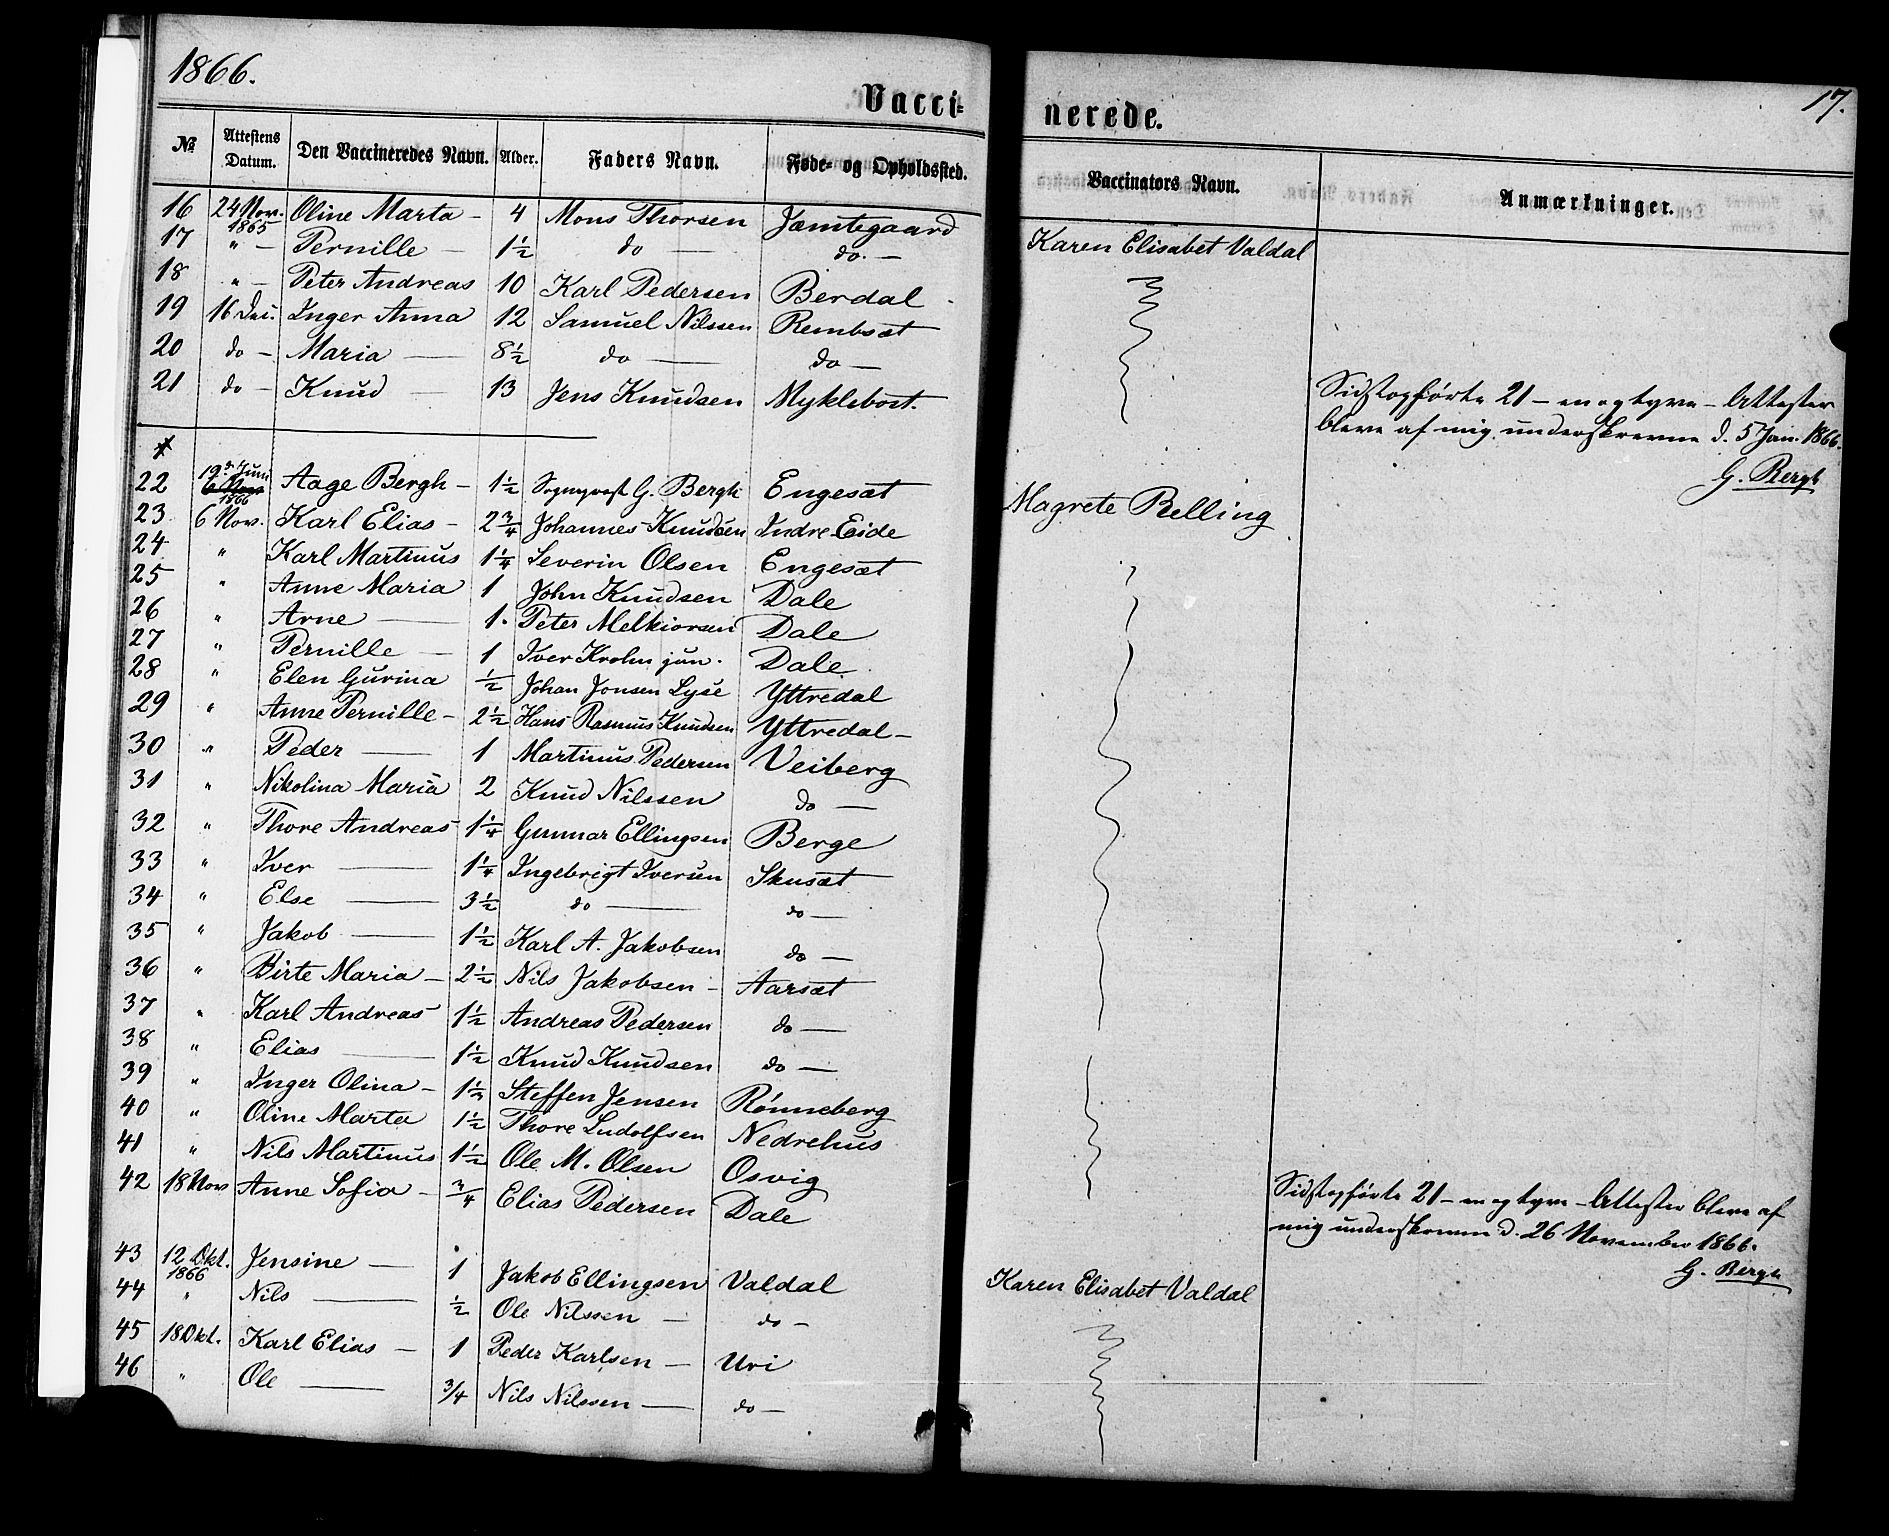 1866.
17.
Vacci-nerede.
№ | Attestens Datum. | Den Vaccineredes Navn. | Alder. | Faders Navn. | Føde- og Opholdssted. | Vaccinators Navn. | Anmærkninger.
16 | 24 Nov. 1865 | Oline Marta - | 4 | Mons Thorsen | Jæmtegaard | Karen Elisabet Valdal
17 | " - | Pernille - | 1½ | do - | do. -
18 | " - | Peter Andreas | 10 | Karl Pedersen | Berdal -
19 | 16 Dec. | Inger Anna | 12 | Samuel Nilssen | Rembsæt
20 | do - | Maria - | 8½ | do - | do -
21 | do - | Knud - | 13 | Jens Knudsen | Myklebost.
Sidstopførte 21 - en og tyve - Attester
bleve af mig underskrevne d. 5 Jan. 1866.
G. Bergh
22 | 19de Juni 1866 | Aage Bergh - | 1½ | Sogneprest G. Bergh | Engesæt | Magrete Relling
23 | 6 Nov. | Karl Elias - | 2¾ | Johannes Knudsen | Indre Eide
24 | " | Karl Martinus | 1¼ | Severin Olsen | Engesæt
25 | " | Anne Maria | 1 | John Knudsen | Dale
26 | " | Arne - | 1. | Peter Melkiorsen | Dale
27 | " | Pernille - | 1 | Iver Krohn jun. | Dale
28 | " | Elen Gurina | ½ | Johan Jonsen Lyse | Yttredal
29 | " | Anne Pernille - | 2½ | Hans Rasmus Knudsen | Yttredal -
30 | " | Peder - | 1 | Martinus Pedersen | Veiberg
31 | " | Nikolina Maria | 2 | Knud Nilssen | do -
32 | " | Thore Andreas | 1¼ | Gunnar Ellingsen | Berge
33 | " | Iver - | 1¼ | Ingebrigt Iversen | Skusæt
34 | " | Else - | 3½ | do - | do -
35 | " | Jakob - | 1½ | Karl A. Jakobsen | do -
36 | " | Birte Maria - | 2½ | Nils Jakobsen - | Aarsæt
37 | " | Karl Andreas | 1½ | Andreas Pedersen | do -
38 | " | Elias - | 1½ | Knud Knudsen | do -
39 | " | Inger Olina - | 1½ | Steffen Jensen | Rønneberg
40 | " | Oline Marta | 1½ | Thore Ludolfsen | Nedrehus
41 | " | Nils Martinus | 1½ | Ole M. Olsen | Osvig
42 | 18 Nov | Anne Sofia - | ¾ | Elias Pedersen | Dale
Sidstopførte 21 - en og tyve - Attester bleve af
mig underskrevne d. 26 November 1866.
G. Bergh
43 | 12 Okt. 1866 | Jensine - | 1 | Jakob Ellingsen | Valdal | Karen Elisabet Valdal
44 | " | Nils - | ½ | Ole Nilssen - | do -
45 | 18 Okt. | Karl Elias - | 1 | Peder Karlsen - | Uri
46 | " | Ole - | 3/4 | Nils Nilssen - | do -